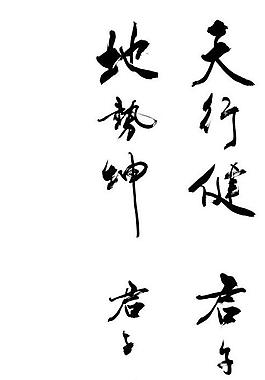 天行健君子
地勢坤君子